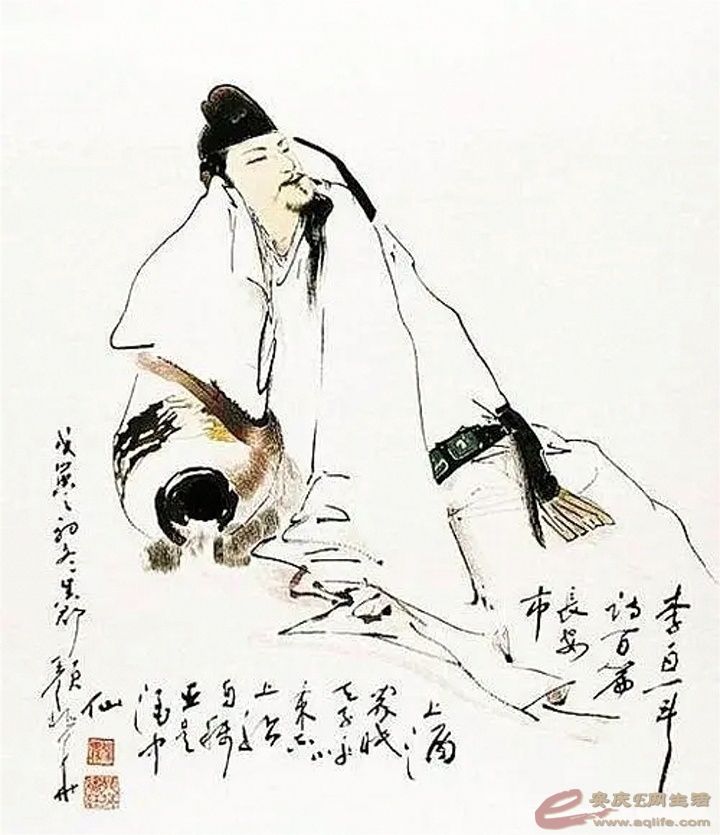 李白一斗
诗百篇
長安
市
上酒
家眠
天子呼
来不
上船
自称
臣是
酒中
仙
戊寅之初冬
安庆E网生活
www.aqlife.com